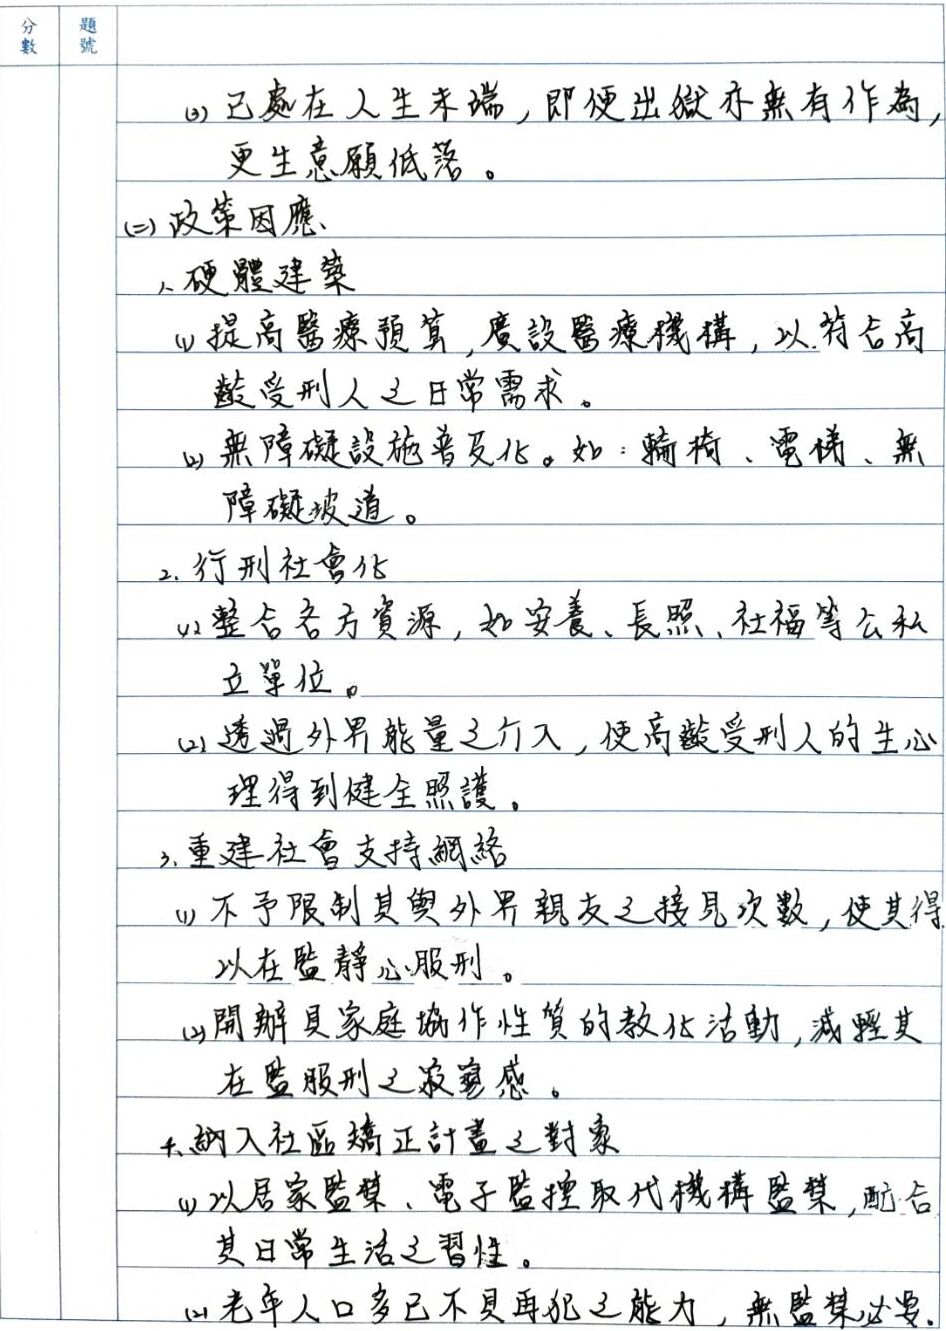 分數 題號
(3) 已處在人生末端，即便出獄亦無有作為，
更生意願低落。
(二) 政策因應
1. 硬體建築
(1) 提高醫療預算，廣設醫療機構，以符合高
齡受刑人之日常需求。
(2) 無障礙設施普及化。如：輪椅、電梯、無
障礙坡道。
2. 行刑社會化
(1) 整合各方資源，如安養、長照、社福等公私
立單位。
(2) 透過外界能量之介入，使高齡受刑人的生心
理得到健全照護。
3. 重建社會支持網絡
(1) 不予限制其與外界親友之接見次數，使其得
以在監靜心服刑。
(2) 開辦具家庭協作性質的教化活動，減輕其
在監服刑之寂寞感。
4. 納入社區矯正計畫之對象
(1) 以居家監禁、電子監控取代機構監禁，配合
其日常生活之習性。
(2) 老年人口多已不具再犯之能力，無監禁必要。